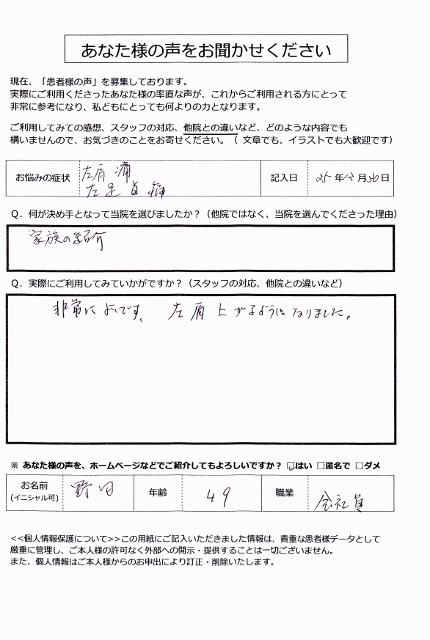 あなた様の声をお聞かせください
現在、「患者様の声」を募集しております。
実際にご利用くださったあなた様の率直な声が、これからご利用される方にとって
非常に参考になり、私どもにとっても何よりの力となります。
ご利用してみての感想、スタッフの対応、他院との違いなど、どのような内容でも
構いませんので、お気づきのことをお寄せください。（ 文章でも、イラストでも大歓迎です）
お悩みの症状
左肩 痛
左足首 痛
記入日 25年12月30日
Q．何が決め手となって当院を選びましたか？（他院ではなく、当院を選んでくださった理由）
家族の紹介
Q．実際にご利用してみていかがですか？（スタッフの対応、他院との違いなど）
非常によいです、 左肩上がるようになりました。
※ あなた様の声を、ホームページなどでご紹介してもよろしいですか？ ☑はい □匿名で □ダメ
お名前
(イニシャル可)
野
年齢 49
職業 会社員
<<個人情報保護について>>この用紙にご記入いただきました情報は、貴重な患者様データとして
厳重に管理し、ご本人様の許可なく外部への開示・提供することは一切ございません。
また、個人情報はご本人様からのお申出により訂正・削除いたします。